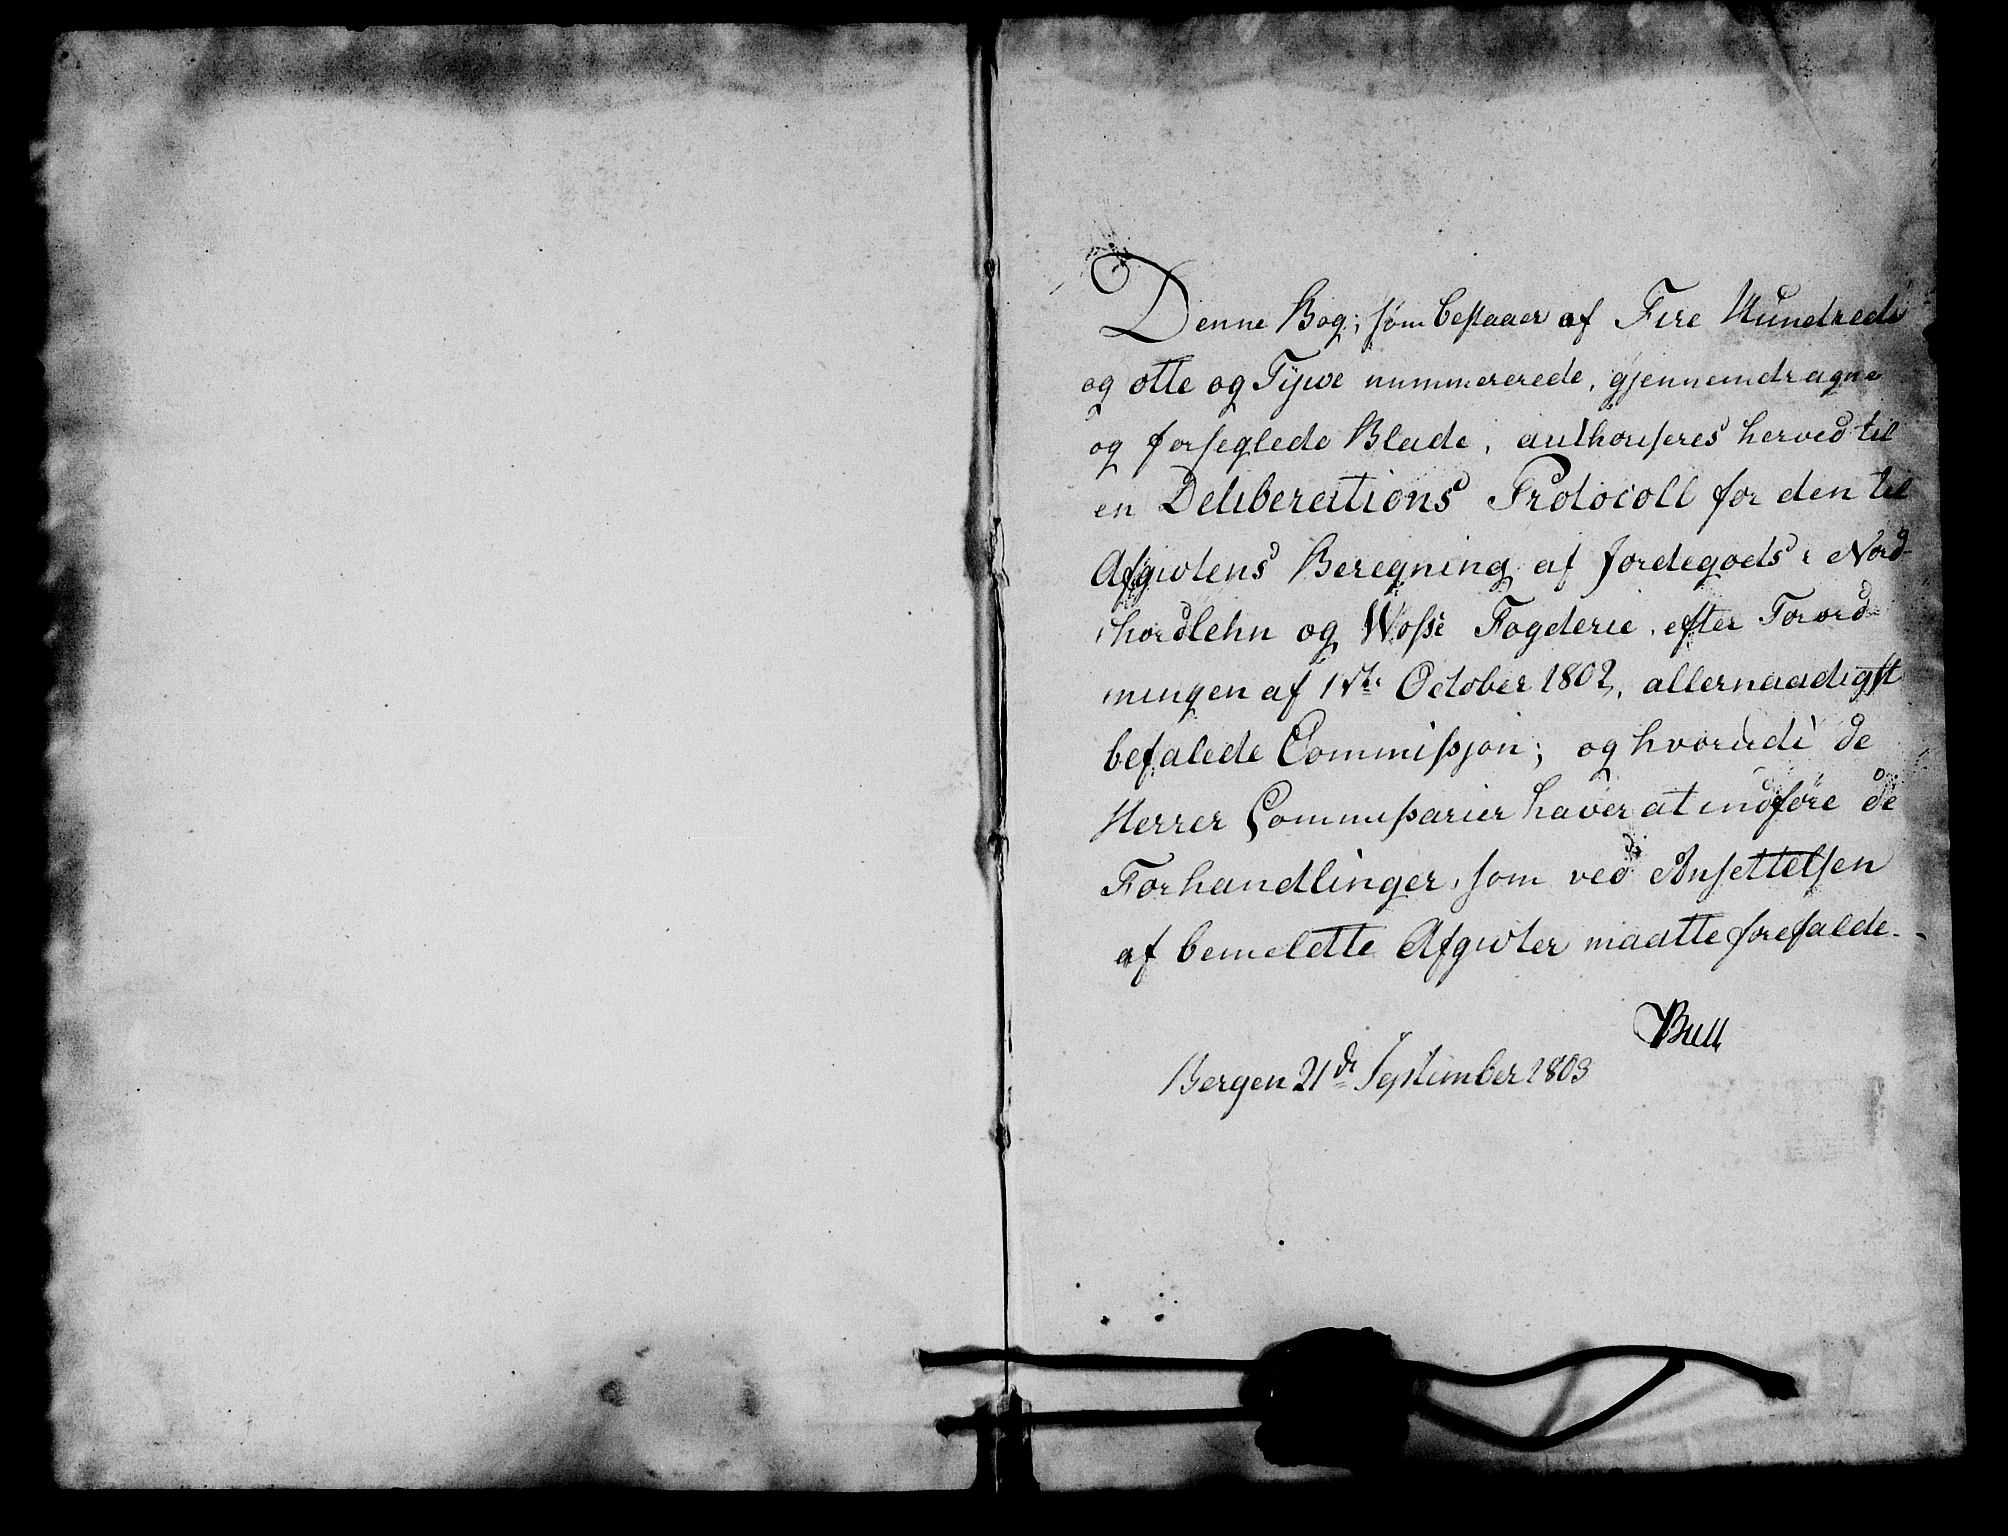 Denne Bog, som bestaaer af Fire Hundrede
og otte og Tÿve nummererede, gjennemdragne
og forseglede Blade, authoriseres herved til
en Deliberations Protocoll for den til
Afgivtens Beregning af Jordegods i Nord-
hordlehn og Wosse Fogderie, efter Forord-
ningen af 1ste October 1802, allernaadigst
befalede Commissjon; og hvorudi de
Herrer Commissarier haver at indføre de
Forhandlinger, som ved Ansettelsen
af bemeldte Afgivter maatte forefalde.
Bull
Bergen 21de September 1803